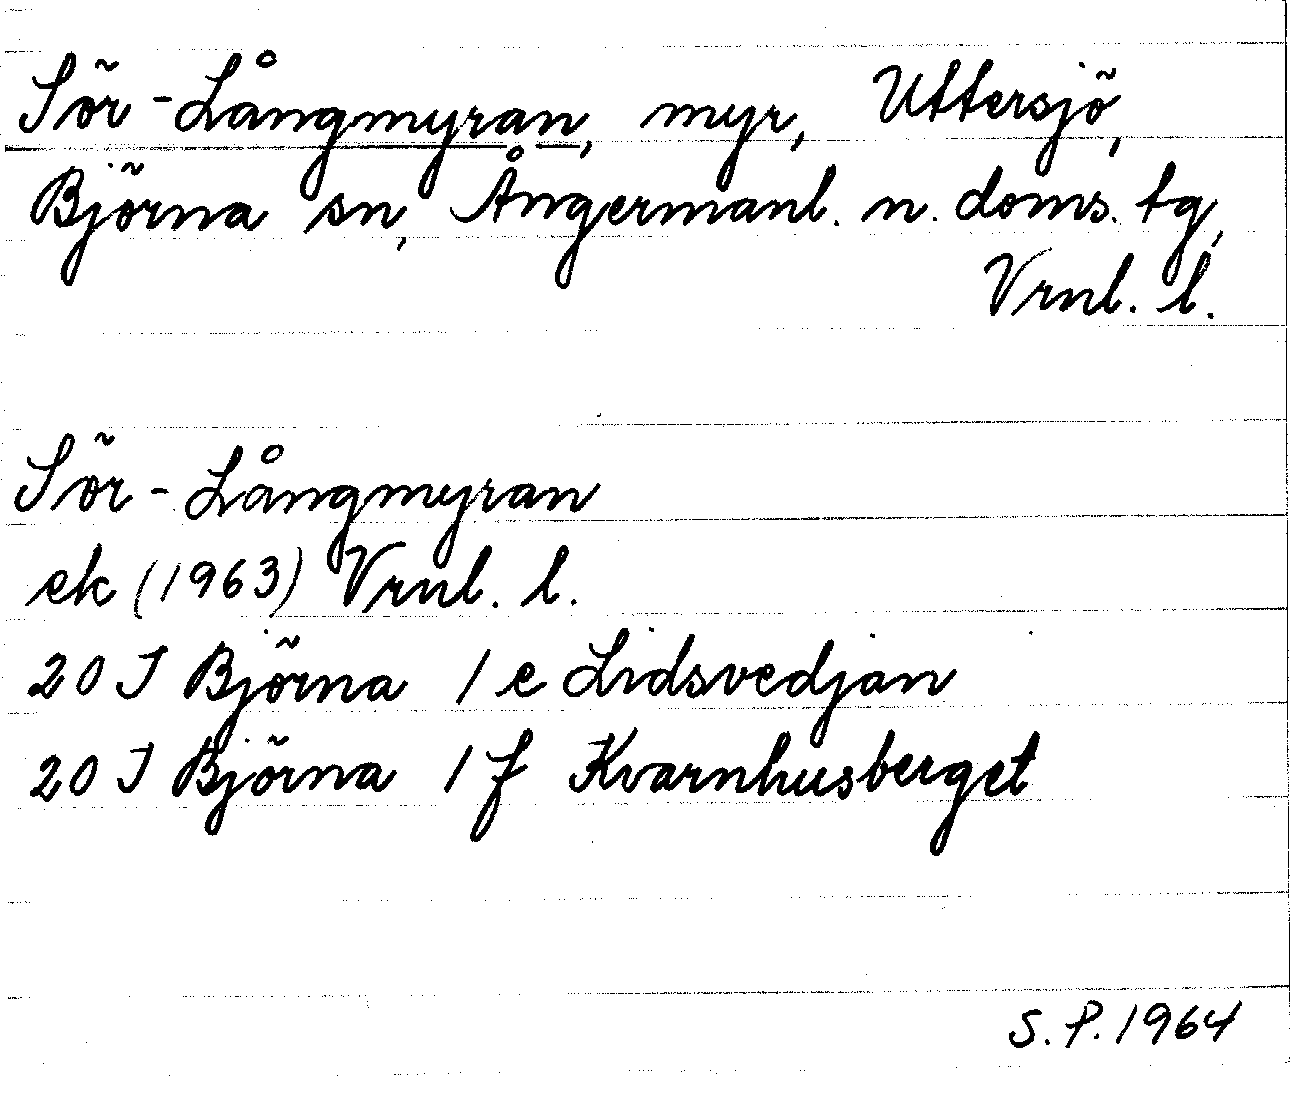 Sör-Långmyran, myr, Uttersjö,
Björna sn, Ångermanl. n. doms. tg,
Vrnl. l.
Sör-Långmyran
ek (1963) Vrnl. l.
20 J Björna 1 e Lidsvedjan
20 J Björna 1 f Kvarnhusberget
S. P. 1964